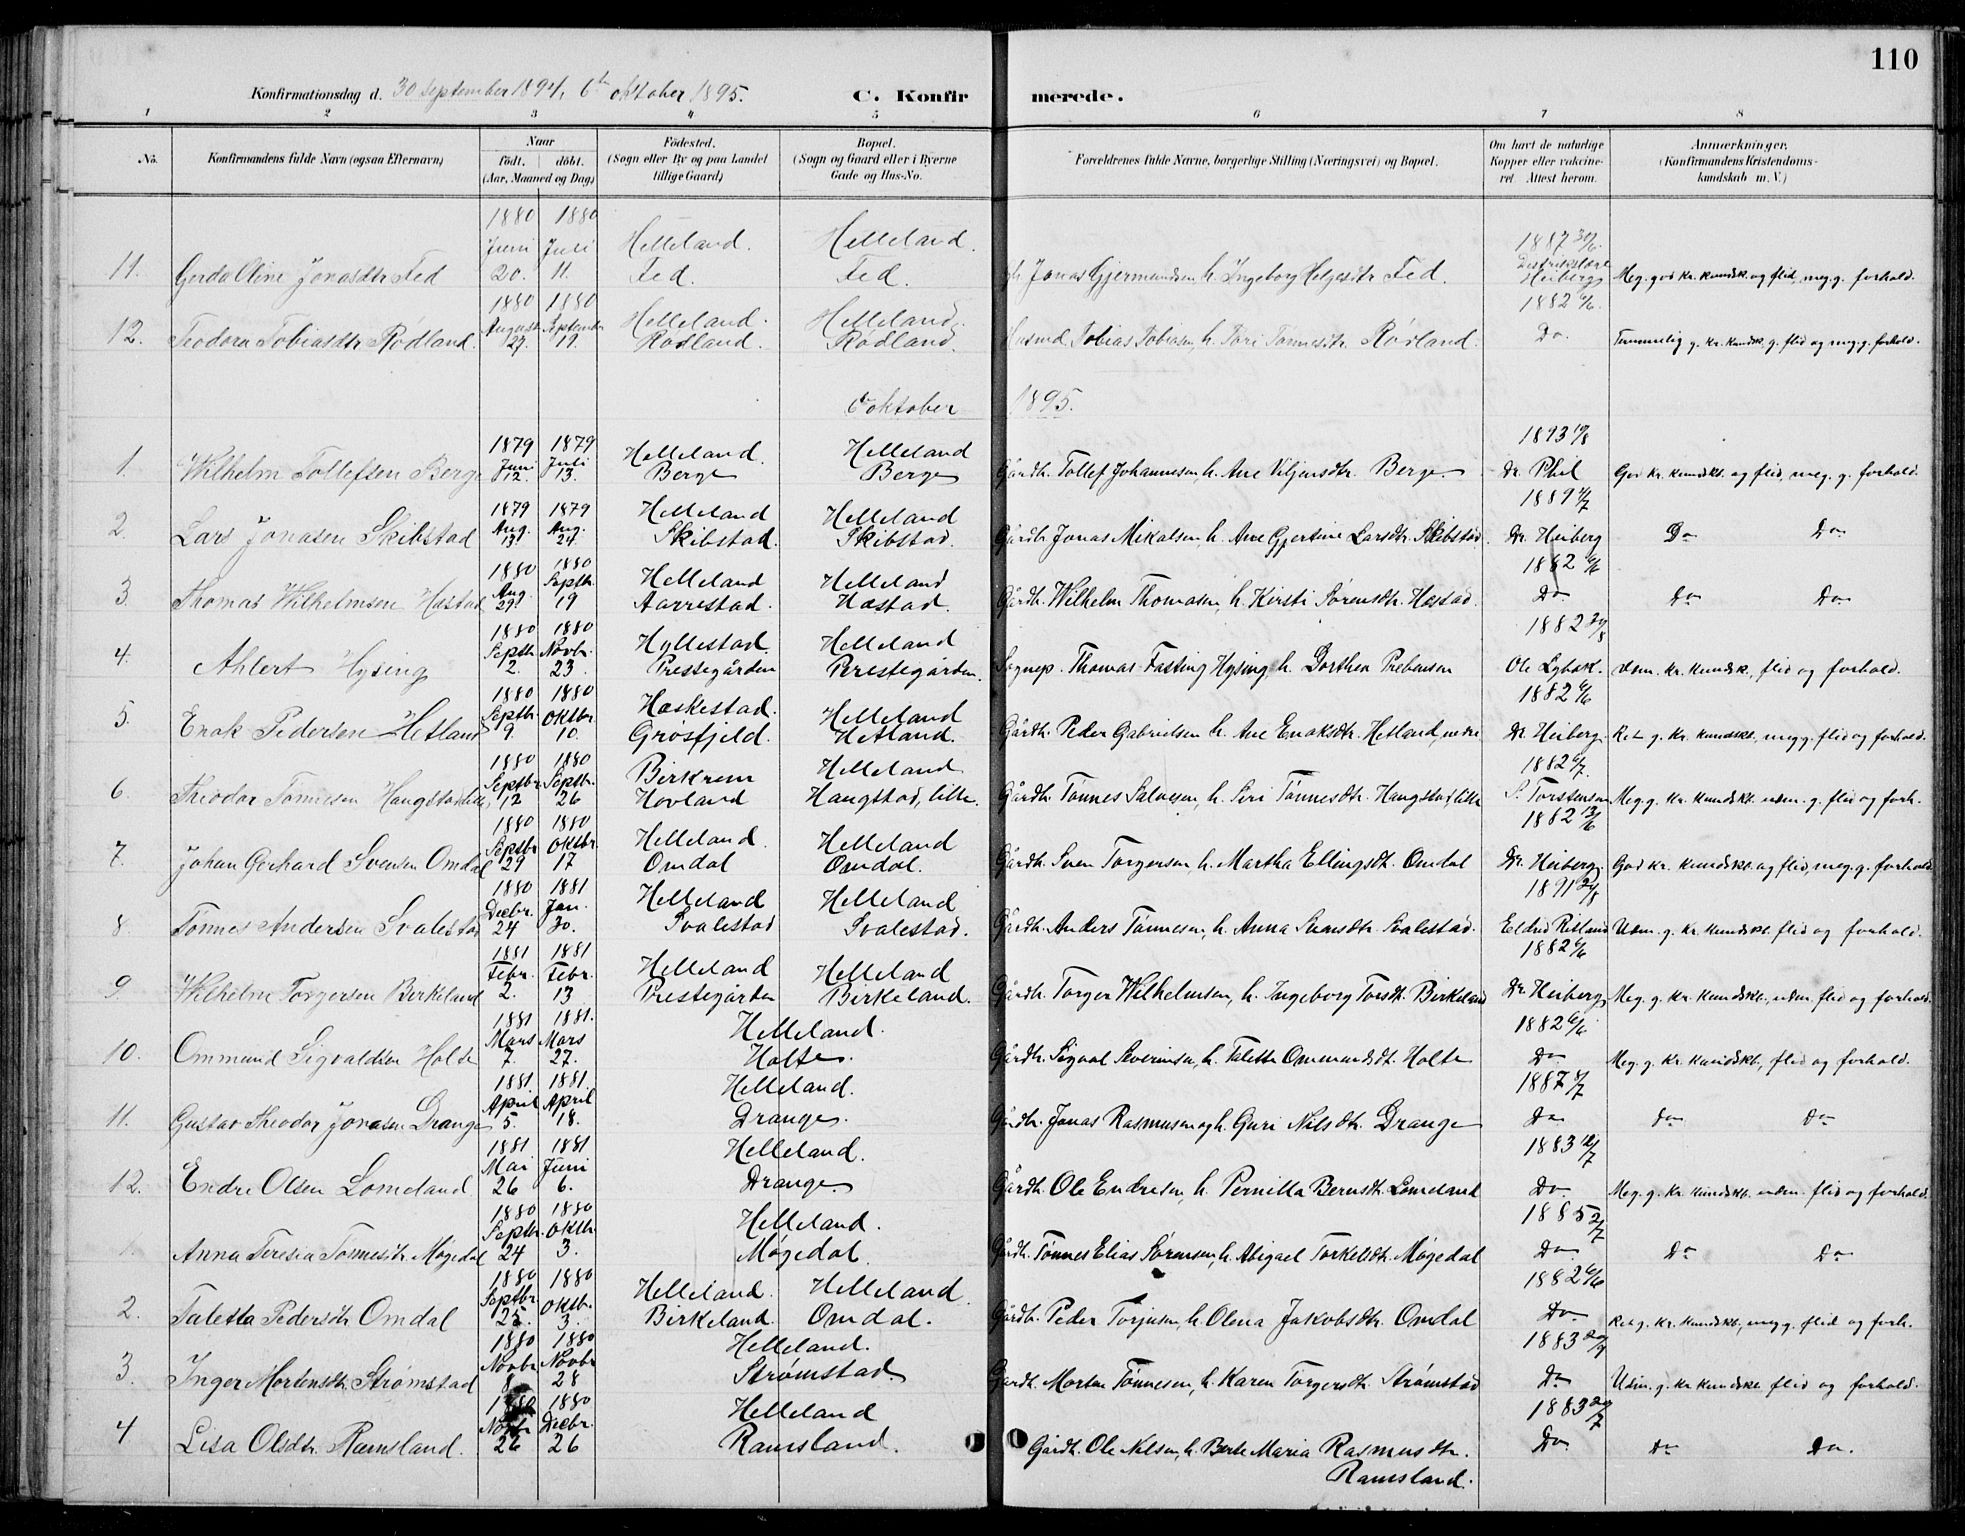 110
Konfirmationsdag d. 30 September 1894, 6te oktober 1895. C. Konfirmerede.
1 2 3 4 5 6 7 8
No. Konfirmandens fulde Navn (ogsaa Efternavn) Naar født. døbt. (Aar, Maaned og Dag) Fødested. (Sogn eller By og paa Landet tillige Gaard) Bopæl. (Sogn og Gaard eller i Byerne Gade og Hus-No. Forældrenes fulde Navne, borgerlige Stilling (Næringsvei) og Bopæl. Om havt de naturlige Kopper eller vaccineret. Attest herom. Anmerkninger. (Konfirmandens Kristendomskundskab m. V.)
1880 1880 Helleland. Helleland. 1887 30/6.
Juni Juli Distriktslæge
11. Gerda Oline Jonasdtr Fed 20. 11. Fed. Fed. Jonas Gjermundsen, h. Ingeborg Helgesdtr Fed. Heiberg Meg. god kr. kundsk. og flid, meg. g. forhold.
1880 1880 Helleland. Helleland. 1882 6/6.
August September
12. Teodora Tobiasdtr Rødland. 29. 19. Rødland. Rødland. Husmd. Tobias Tobiasen, h. Tønnesdtr. Rødland. Do. Temmelig g. kr. kundsk., g. flid og meg. g. forhold.
6 oktober 1895.
1879 1879 Helleland. Helleland 1893
Juni Juli
1. Wilhelm Tollefsen Berge 12. 13. Berge Berge Gårdbr. Tollef Johannesen, h. Ane Berge. Dr. Phil God kr. kundskb. og flid, meg. g. forhold.
1879 1879 Helleland Helleland 1889
Aug. Aug.
2. Lars Jonasen Skibstad 13. 24. Skibstad. Skibstad. Gårdbr. Jonas Mikalsen, h. Ane Gjertine Larsdtr. Skibstad. Dr. Heiberg Do Do
1880 1880 Helleland Helleland 1882 6/6
Aug. Septbr.
3. Thomas Wilhelmsen Hæstad 29. 19 Aarrestad. Hæstad. Gårdbr. Wilhelm Thomasen, h. Kirsti Sørensdtr. Hæstad. Do Do Do
1880 1880 Hyllestad. Helleland 1882
Septbr. Novbr.
4. Ahlert Hysing 2. 23. Prestegården Prestegården. Sognep. Thomas Fasting Hysing, h. Dorthea Prebensen Ole Udm. kr. kundsk., flid og forhold.
1880 1880 Hæskestad. Helleland 1882 6/6
Septbr. Oktbr.
5. Enok Pedersen Hetland 9. 10. Grøsfjeld. Hetland. Gårdbr. Peder Gabrielsen, h. Ane Enoksdtr. Hetland, nedre Dr. Heiberg. Ret g. kr. kundskb., meg g. flid og forhold.
1880 1880 Birkrem Helleland 1882
Septbr. Septbr.
6. Theodor Tønnesen Haugstad lille 12 26 Hovland Haugstad, lille. Gårdbr. Tønnes Salvesen, h. Siri Tønnesdtr. Haugstad, lille S. Torstensen Meg. g. kr. kundskb. udm. g. flid og forh.
1880 1880 Helleland. Helleland 1882 13/6
Septbr Oktbr.
7. Johan Gerhard Svensen Omdal 29 17 Omdal Omdal. Gårdbr. Sven Torgersen, h. Martha Ellingsdtr. Omdal Dr. Heiberg. God kr. kundskb. og flid, meg. g. forhold.
1880 1881 Helleland Helleland 1891
Decbr. Jan.
8. Tønnes Andersen Svalestad 24 30. Svalestad Svalestad. Gårdbr. Anders Tønnesen, h. Anna Svensdtr. Svalestad. Eldrid Ritland Udm. g. kr. kundskb. flid og forhold.
1881 1881 Helleland Helleland 1882 6/6
Febr. Febr.
9. Wilhelm Torgersen Birkeland 2. 13 Prestegården Birkeland. Gårdbr. Torger Wilhelmsen, h. Ingeborg Torsdtr. Birkeland Dr. Heiberg Meg. g. kr. kundskb., udm. flid og forhold.
1881 1881. Helleland. 1882 6/6
Mars Mars
10. Ommund Sigvaldsen Holte 7. 27. Holte. Gårdbr. Sigval Severinsen, h. Talette Ommundsdtr. Holte Do Meg. g. kr. kundskb., flid og forhold.
1881. 1881. Helleland. 1887
April April
11. Gustav Theodor Jonasen Drange 5. 18. Drange. Gårdbr. Jonas Rasmusen og h. Guri Nilsdtr. Drange Do Do Do
1881 1881 Helleland. 1883
Mai Juni
12. Endre Olsen Lomeland 26 6. Drange. Gårdbr. Ole Endresen, h. Pernilla Berntsdtr. Lomeland Do. Meg. g. kr. kundskb. udm. flid og forhold.
1880 1880 Helleland. 1885
Septbr. Oktbr.
1. Anna Teresia Tønnesdtr. Møgedal 24 3. Møgedal. Gårdbr. Tønnes Elias Sørensen, h. Abigael Torkelsdtr. Møgedal Do Do Do
1880 1880 Helleland. Helleland. 1882 6/6
Septbr. Oktbr.
2. Taletta Pedersdtr. Omdal 25. 3. Birkeland. Omdal. Gårdbr. Peder Torjusen, h. Olena Jakobsdtr. Omdal Do Ret g. kr. kundskb., meg g. flid og forh.
1880 1880 Helleland. 1883
Novbr Novbr
3. Inger Mortensdtr. Strømstad 8 28 Strømstad. Gårdbr. Morten Tønnesen, h. Karen Torgersdtr. Strømstad Do Udm. g. kr. kundskb. flid og forhold.
1880 1880 Helleland 1883
Novbr Decbr.
4 Lisa Olsdtr. Ramsland. 26 26 Ramsland. Gårdbr. Ole Nilsen, h. Berte Maria Rasmusdtr. Do. Do Do.
Ramsland.